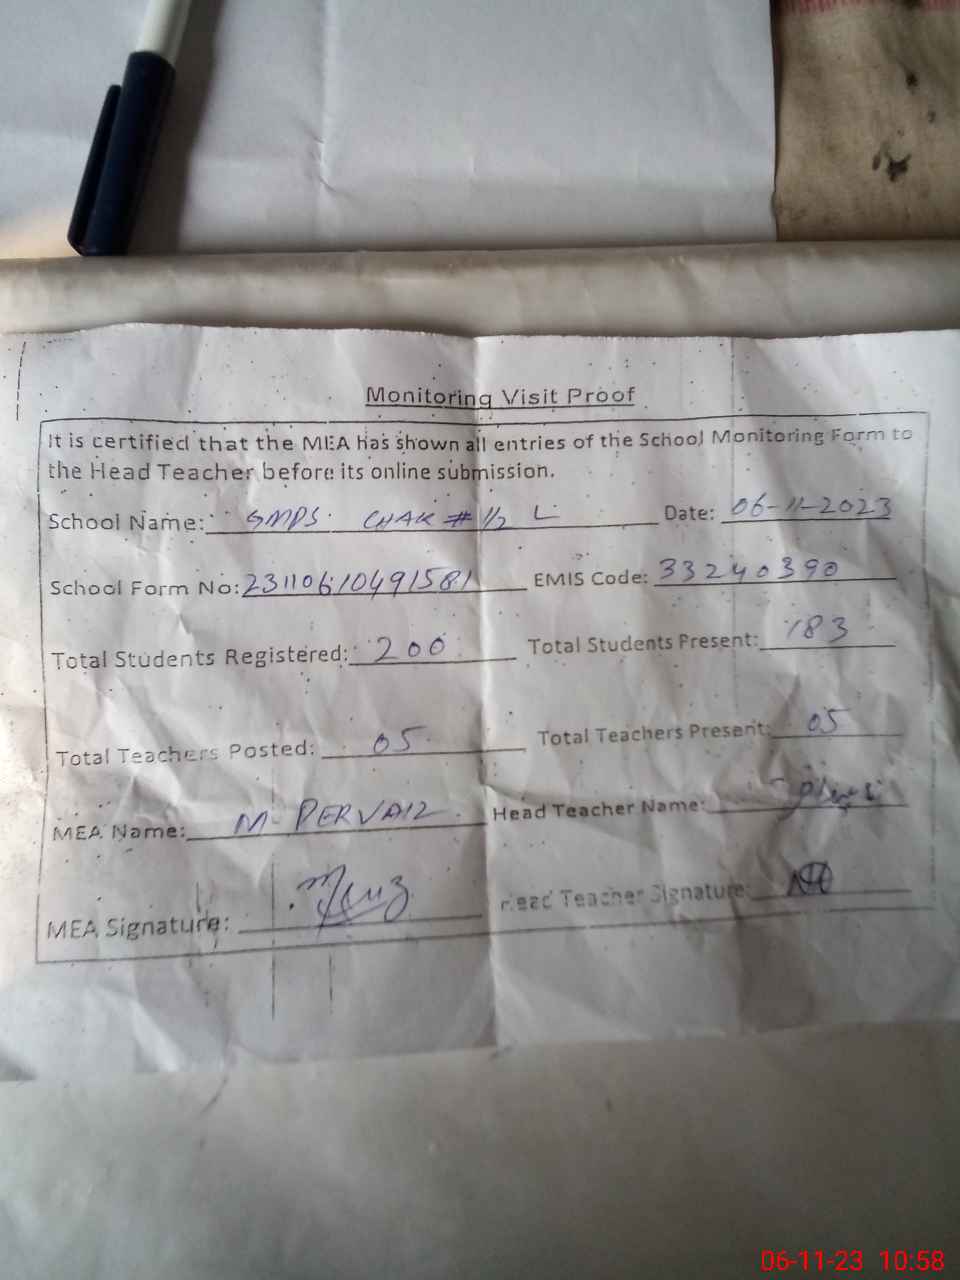 Monitoring Visit Proof
It is certified that the MEA has shown all entries of the School Monitoring Form to
the Head Teacher before its online submission.
School Name: GMPS. CHAK # 1/2 L Date: 06-11-2023
School Form No: 23110610491581 EMIS Code: 33240390
Total Students Registered: 200 Total Students Present: 183
Total Teachers Posted: 05 Total Teachers Present: 05
MEA Name: M. PERVAIZ Head Teacher Name:
MEA Signature: Head Teacher Signature:
06-11-23 10:58